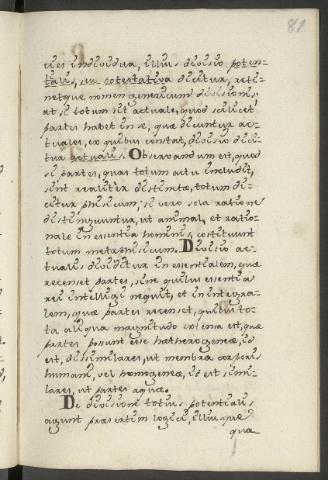 81
cies individua, illius divisio poten-
tialis, seu potestativa dicitur, reti-
netque nomen genericum divisionis,
at si totum sit actuale, quod scilicet
partes habet in se, quæ dicuntur ac-
tuales, ex quibus constat, divisio dici-
tur actualis. Observandum est, quod
si partes, quas totum actu includit,
sint realiter distinctæ, totum di-
citur phisicum; si vero sola ratione
distinguuntur, ut animal, et ratio-
nale in essentia hominis, constituunt
totum metaphisicum. Divisio ac-
tualis dividitur in essentialem, quæ
recenset partes, sine quibus essentia
rei intelligi nequit, et in integra-
lem, quæ partes recenset, quibus to-
ta aliqua magnitudo extensa est, quæ
partes possunt esse hætherogeneæ, id
est, dissimilares, ut membra corporis
humani, vel homogeneæ, id est simi-
lares, ut partes aquæ.
De divisione totius potentialis
agunt præsertim logici, illius que
qua